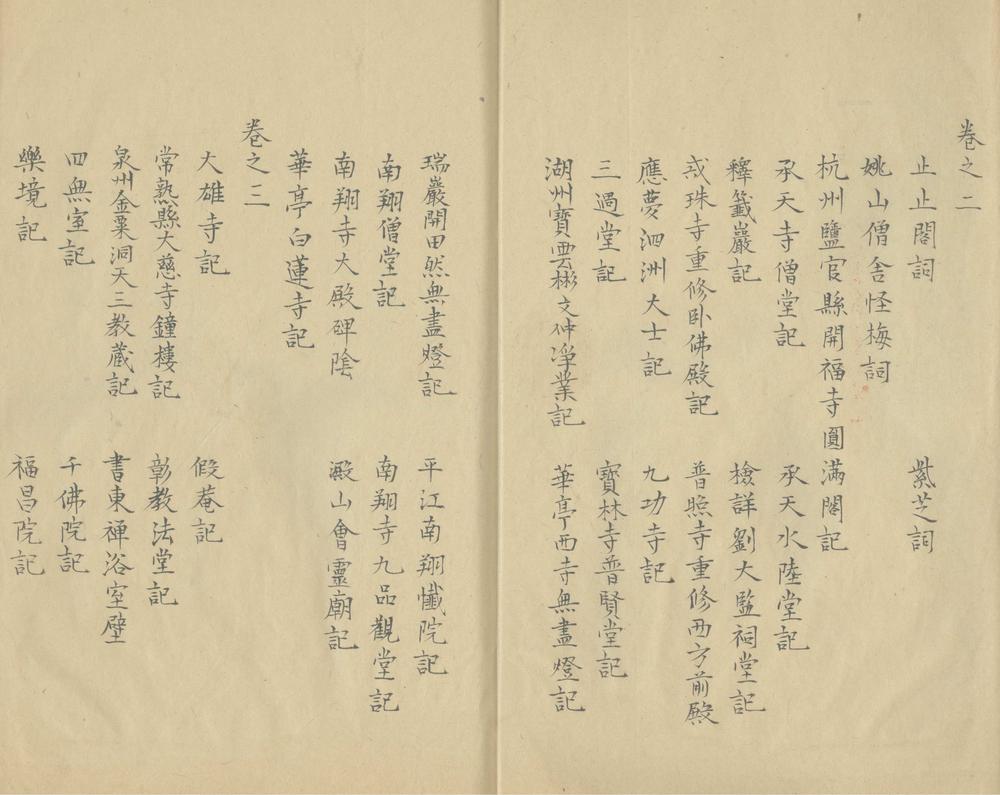 卷之二
止止閣詞 紫芝詞
姚山僧舍怪梅詞
杭州鹽官縣開福寺圓滿閣記
承天寺僧堂記 承天水陸堂記
釋籤巖記 檢詳劉大監祠堂記
戎珠寺重修臥佛殿記 普照寺重修西方前殿
應夢泗洲大士記 九功寺記
三過堂記 寶林寺普賢堂記
湖州寶雲彬文仲淨業記 華亭西寺無盡燈記
瑞巖開田然無盡燈記 平江南翔懺院記
南翔僧堂記 南翔寺九品觀堂記
南翔寺大殿碑陰 澱山會靈廟記
華亭白蓮寺記
卷之三
大雄寺記 假菴記
常熟縣大慈寺鐘樓記 彰教法堂記
泉州金粟洞天三教藏記 書東禪浴室壁
四無室記 千佛院記
樂境記 福昌院記